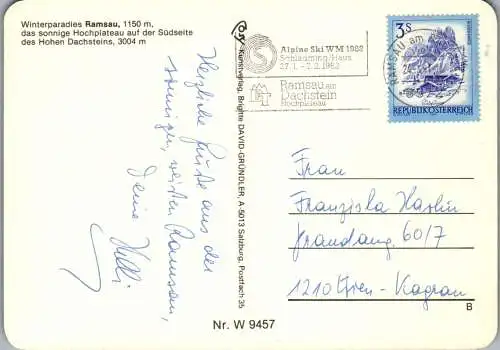 Winterparadies Ramsau, 1150 m,
das sonnige Hochplateau auf der Südseite
des Hohen Dachsteins, 3004 m
Herzliche Grüße aus der
sonnigen, weißen Ramsau,
Deine
Kunstverlag, Brigitte DAVID-GRÜNDLER, A 5013 Salzburg, Postfach 35
Alpine Ski WM 1982
Schladming/Haus
27.1. - 7.2.1982
Ramsau am
Dachstein
Hochplateau
3S
RAMSAU am
REPUBLIK ÖSTERREICH
Frau
Franziska
60/7
1210 Wien - Kagran
B
Nr. W 9457